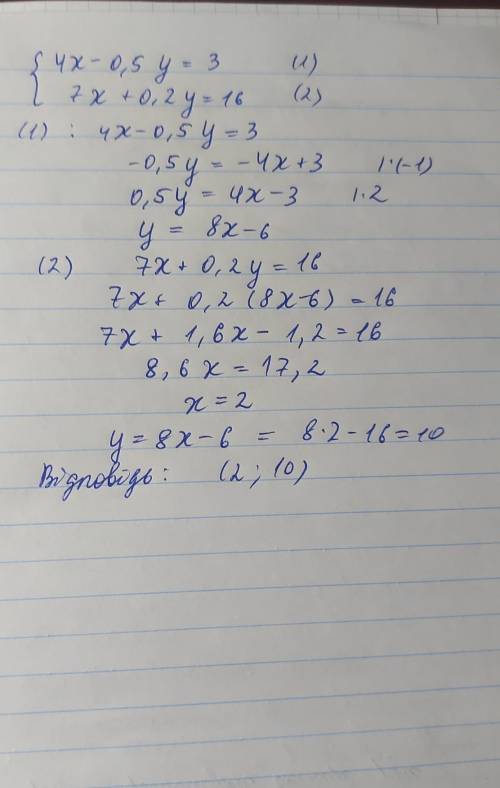 { 4x - 0,5 y = 3 (1)
7x + 0,2 y = 16 (2)
(1) : 4x - 0,5 y = 3
-0,5 y = -4x + 3 | · (-1)
0,5 y = 4x - 3 | · 2
y = 8x - 6
(2) 7x + 0,2 y = 16
7x + 0,2 (8x - 6) = 16
7x + 1,6x - 1,2 = 16
8,6 x = 17,2
x = 2
y = 8x - 6 = 8 · 2 - 16 = 10
Відповідь: (2 ; 10)